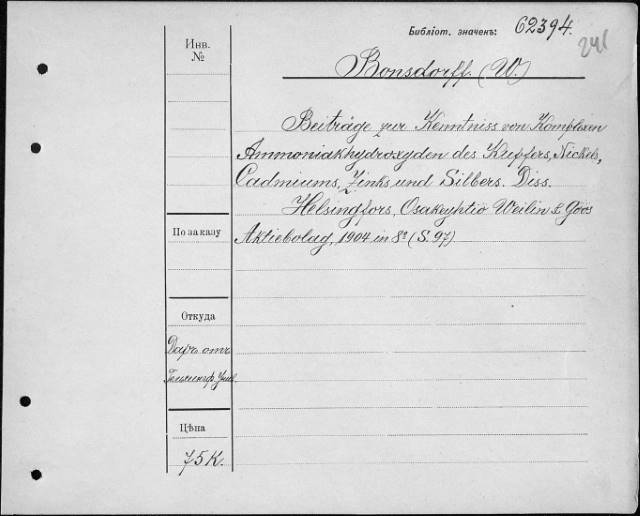 Библіот. значекъ: 62394.
241
Инв.
№
Bonsdorff. (W.)
Beiträge zur Kenntniss von Komplexen
Ammoniakhydroxyden des Kupfers, Nickels,
Cadmiums, Zinks und Silbers. Diss.
Helsingfors, Osakeyhtiö Weilin & Göös
По заказу
Aktiebolag, 1904 in 8º (S. 97)
Откуда
Даръ отъ
Гельсингф. Унив.
Цѣна
75 К.